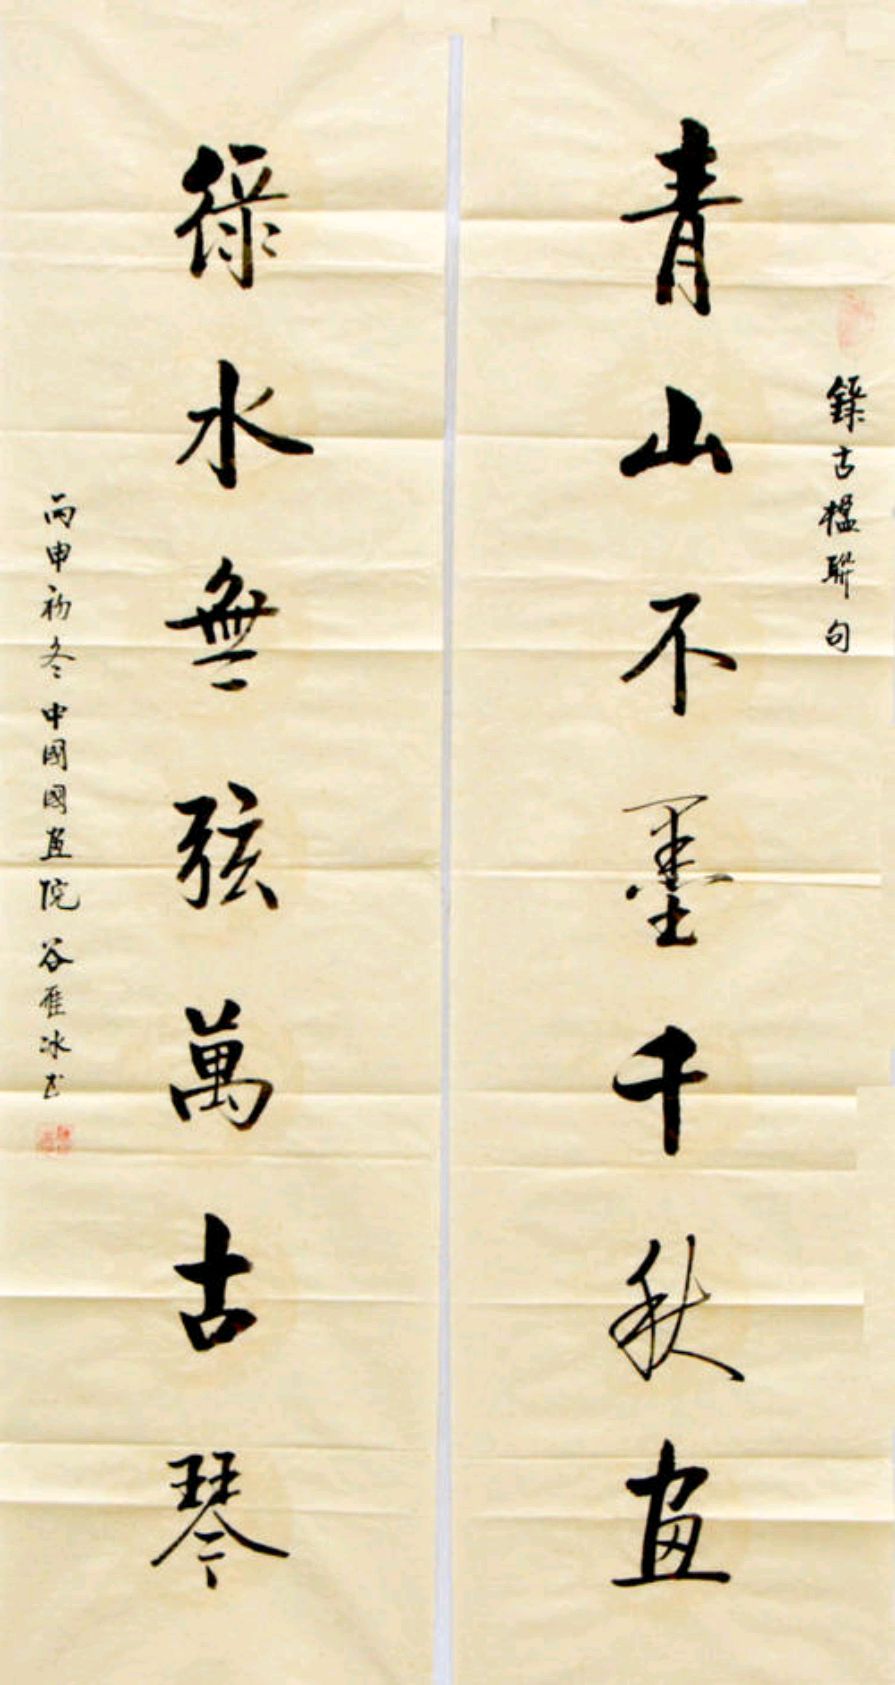 錄古楹聯句
青山不墨千秋画
綠水無弦萬古琴
丙申初冬中國國画院谷雁冰书